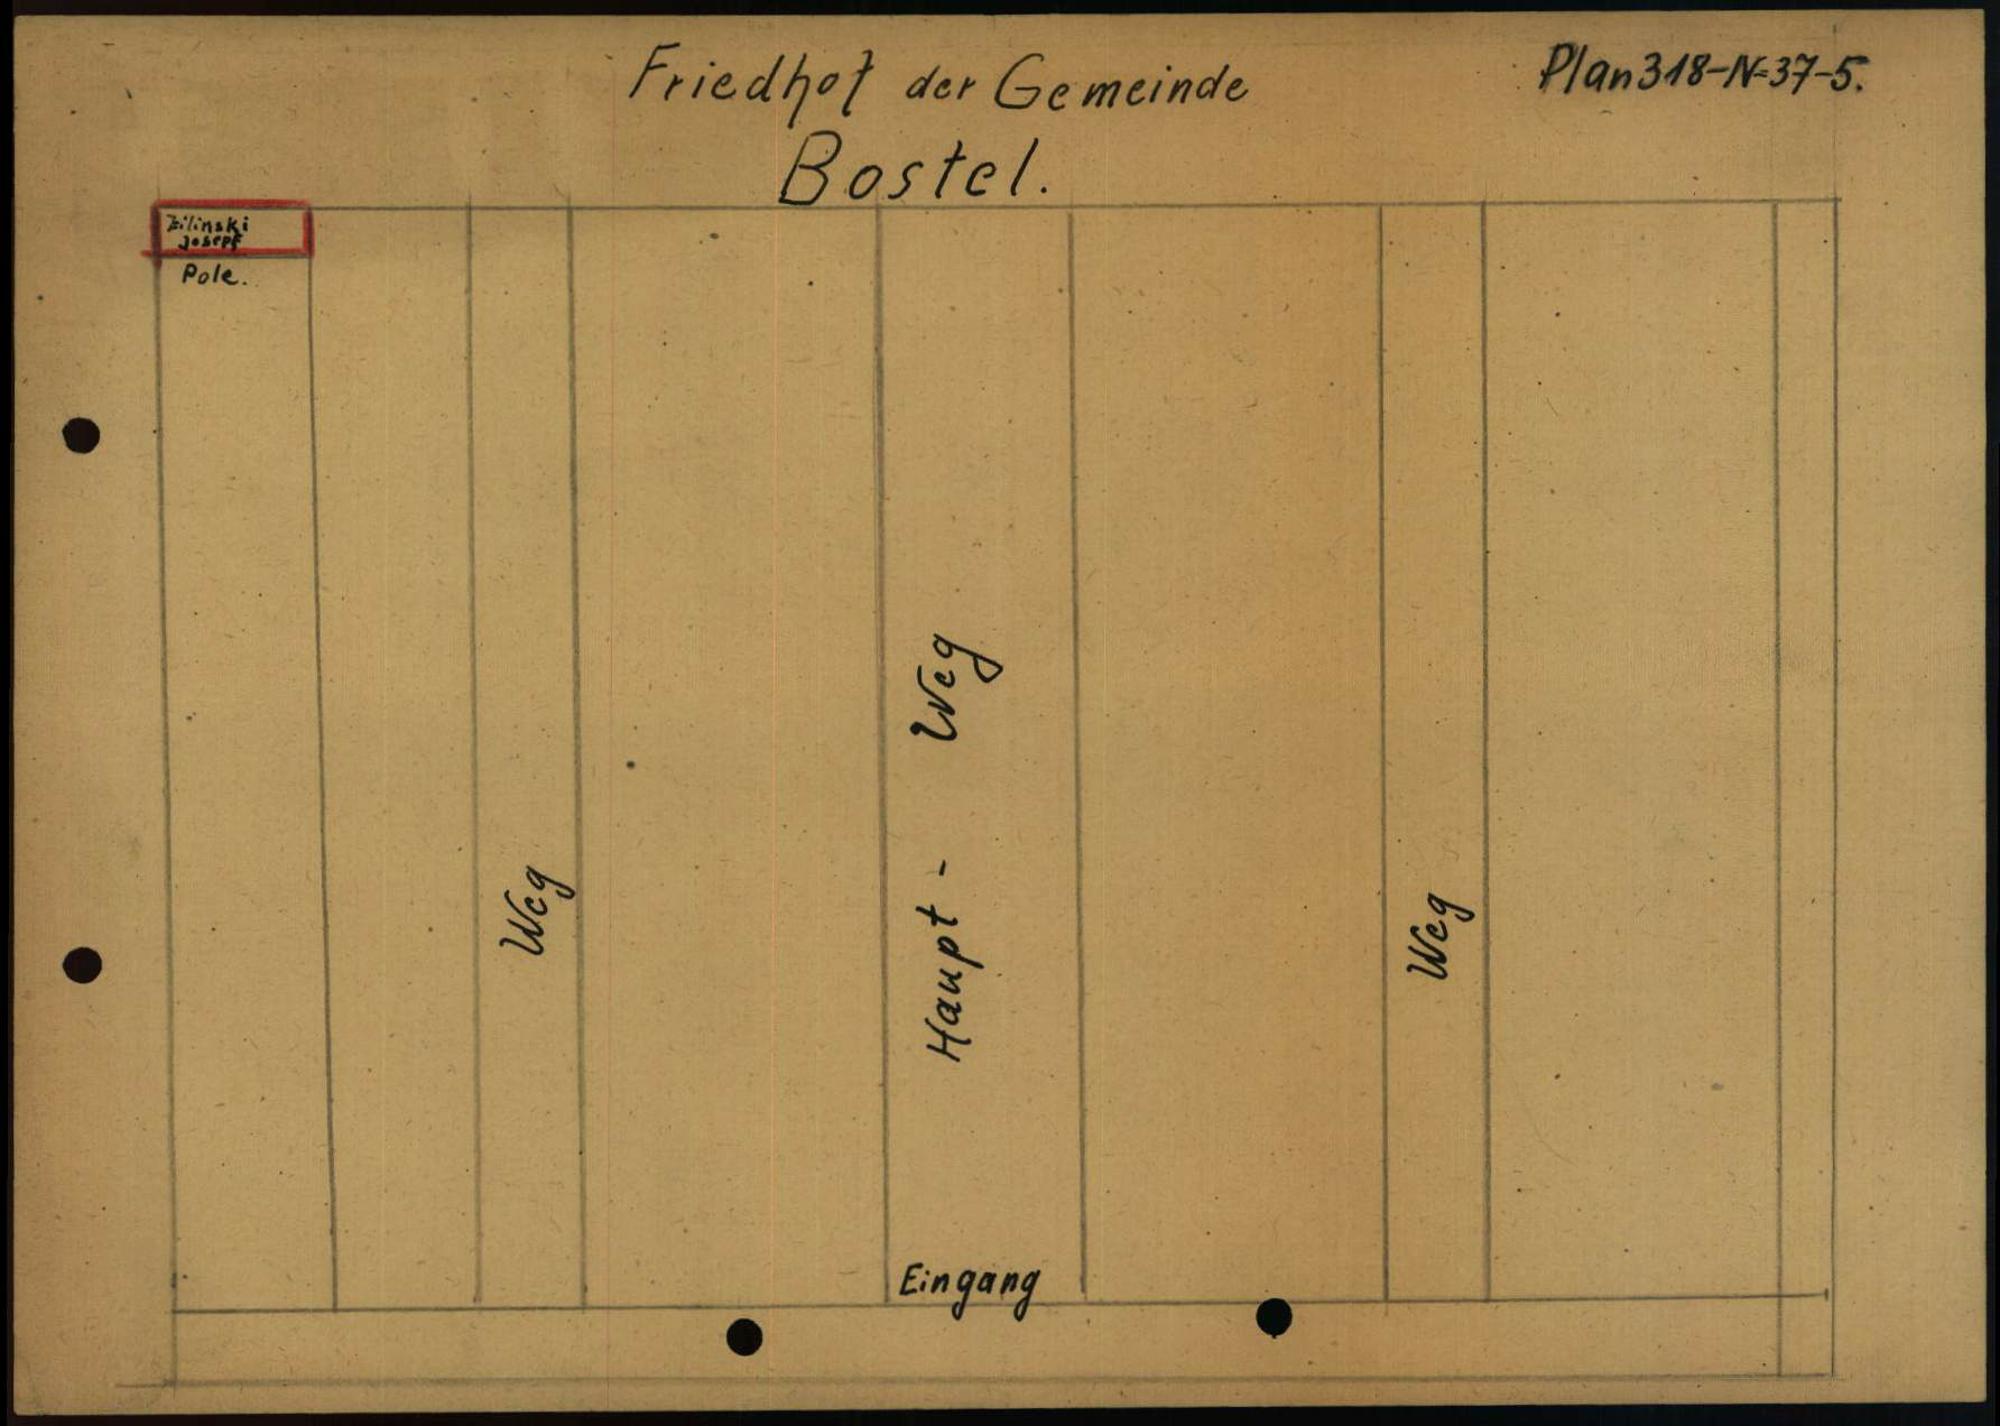 Friedhof der Gemeinde
Plan 318-N=37-5.
Bostel.
Zilinski
Josepf
Pole.
Weg
Haupt - Weg
Weg
Eingang